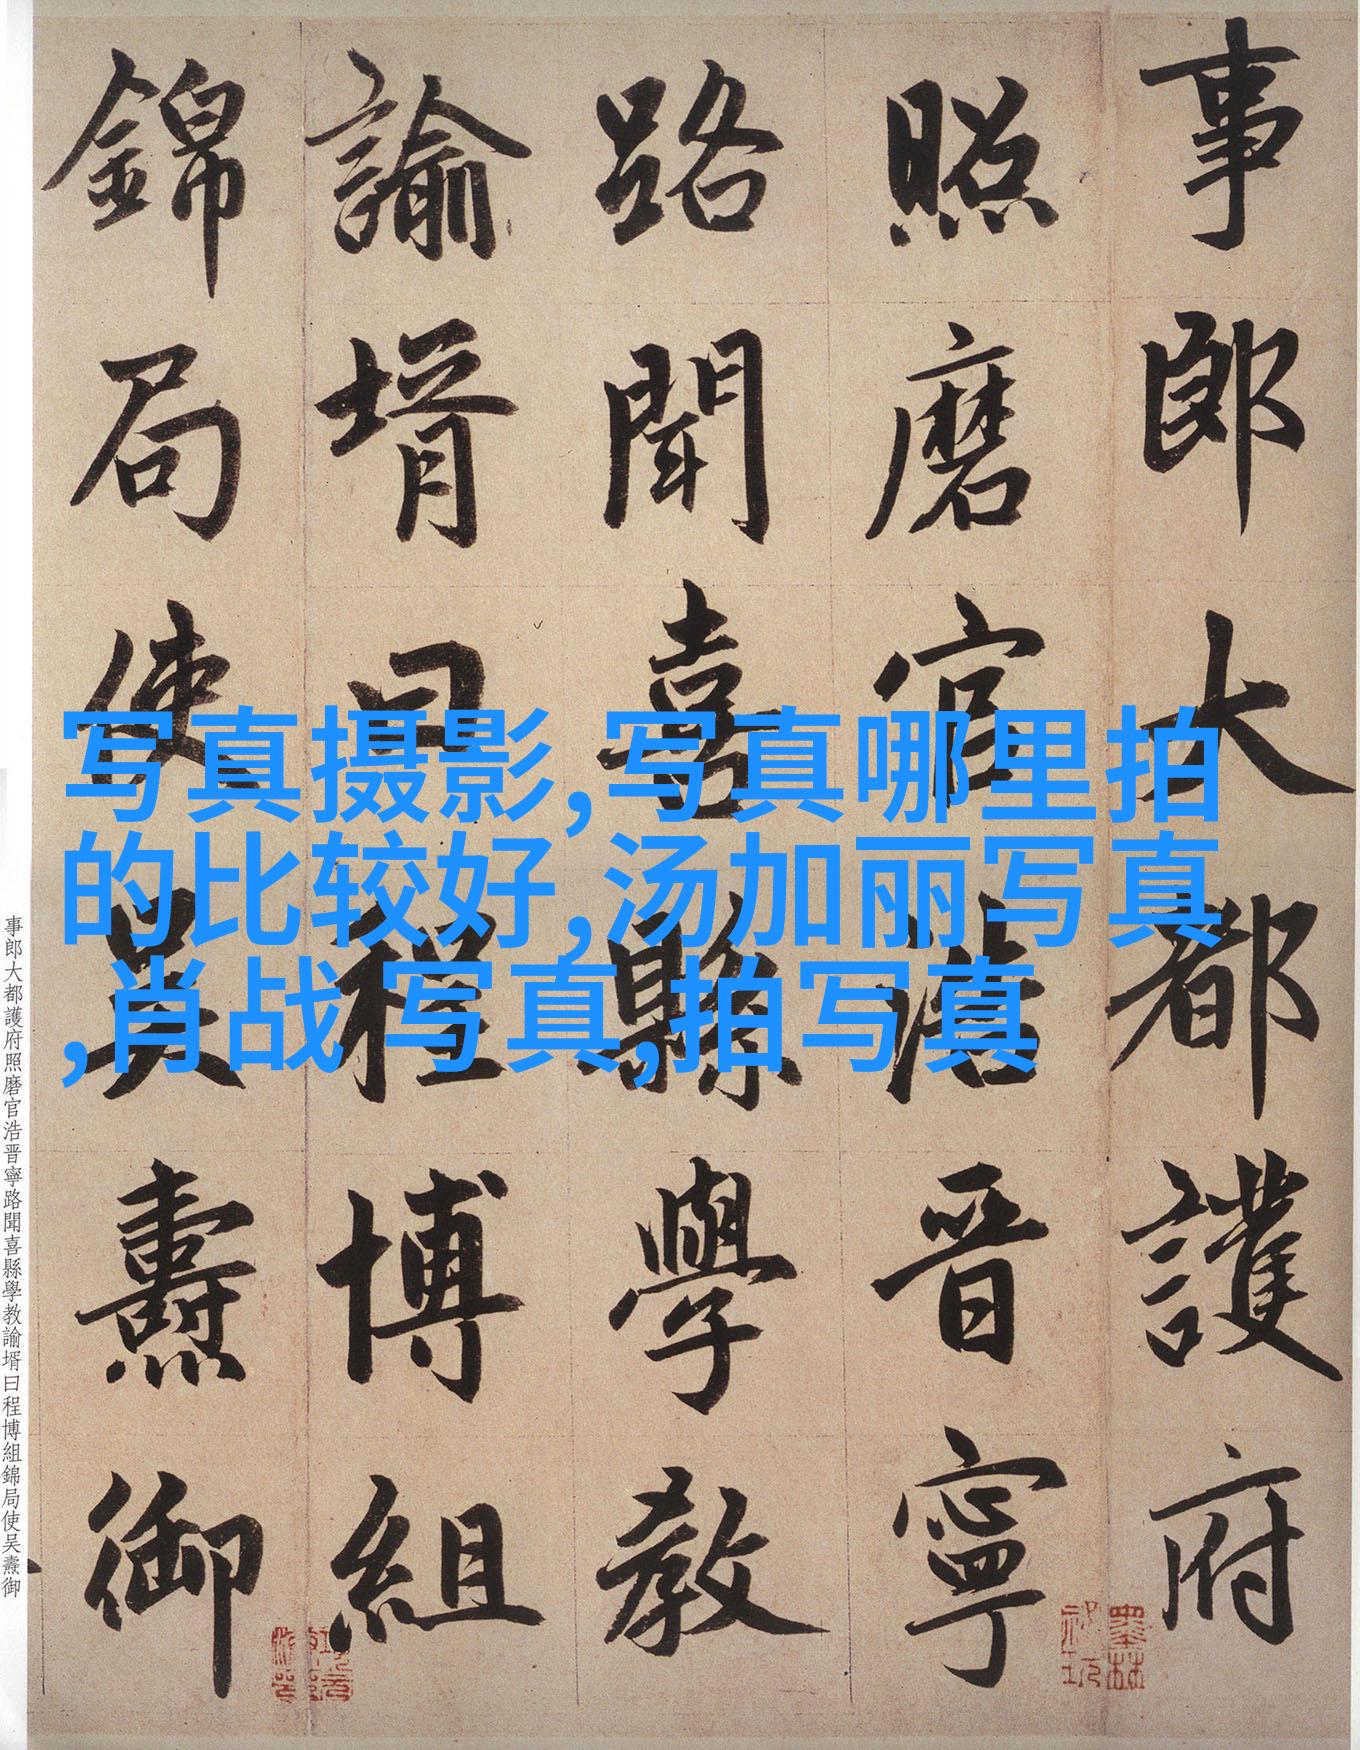 事郎大都護府
照磨官浩晋寧
路聞喜縣學教
諭壻曰程博組
錦局使吴燾御
写真摄影,写真哪里拍
的比较好,汤加丽写真
,肖战写真,拍写真
事郎大都護府照磨官浩晋寧路聞喜縣學教諭壻曰程博組錦局使吴燾御